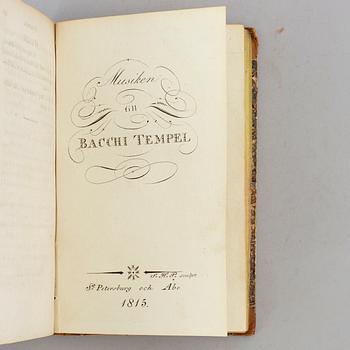 Musiken
till
BACCHI TEMPEL
sculps
St Petersburg och Åbo
1815.